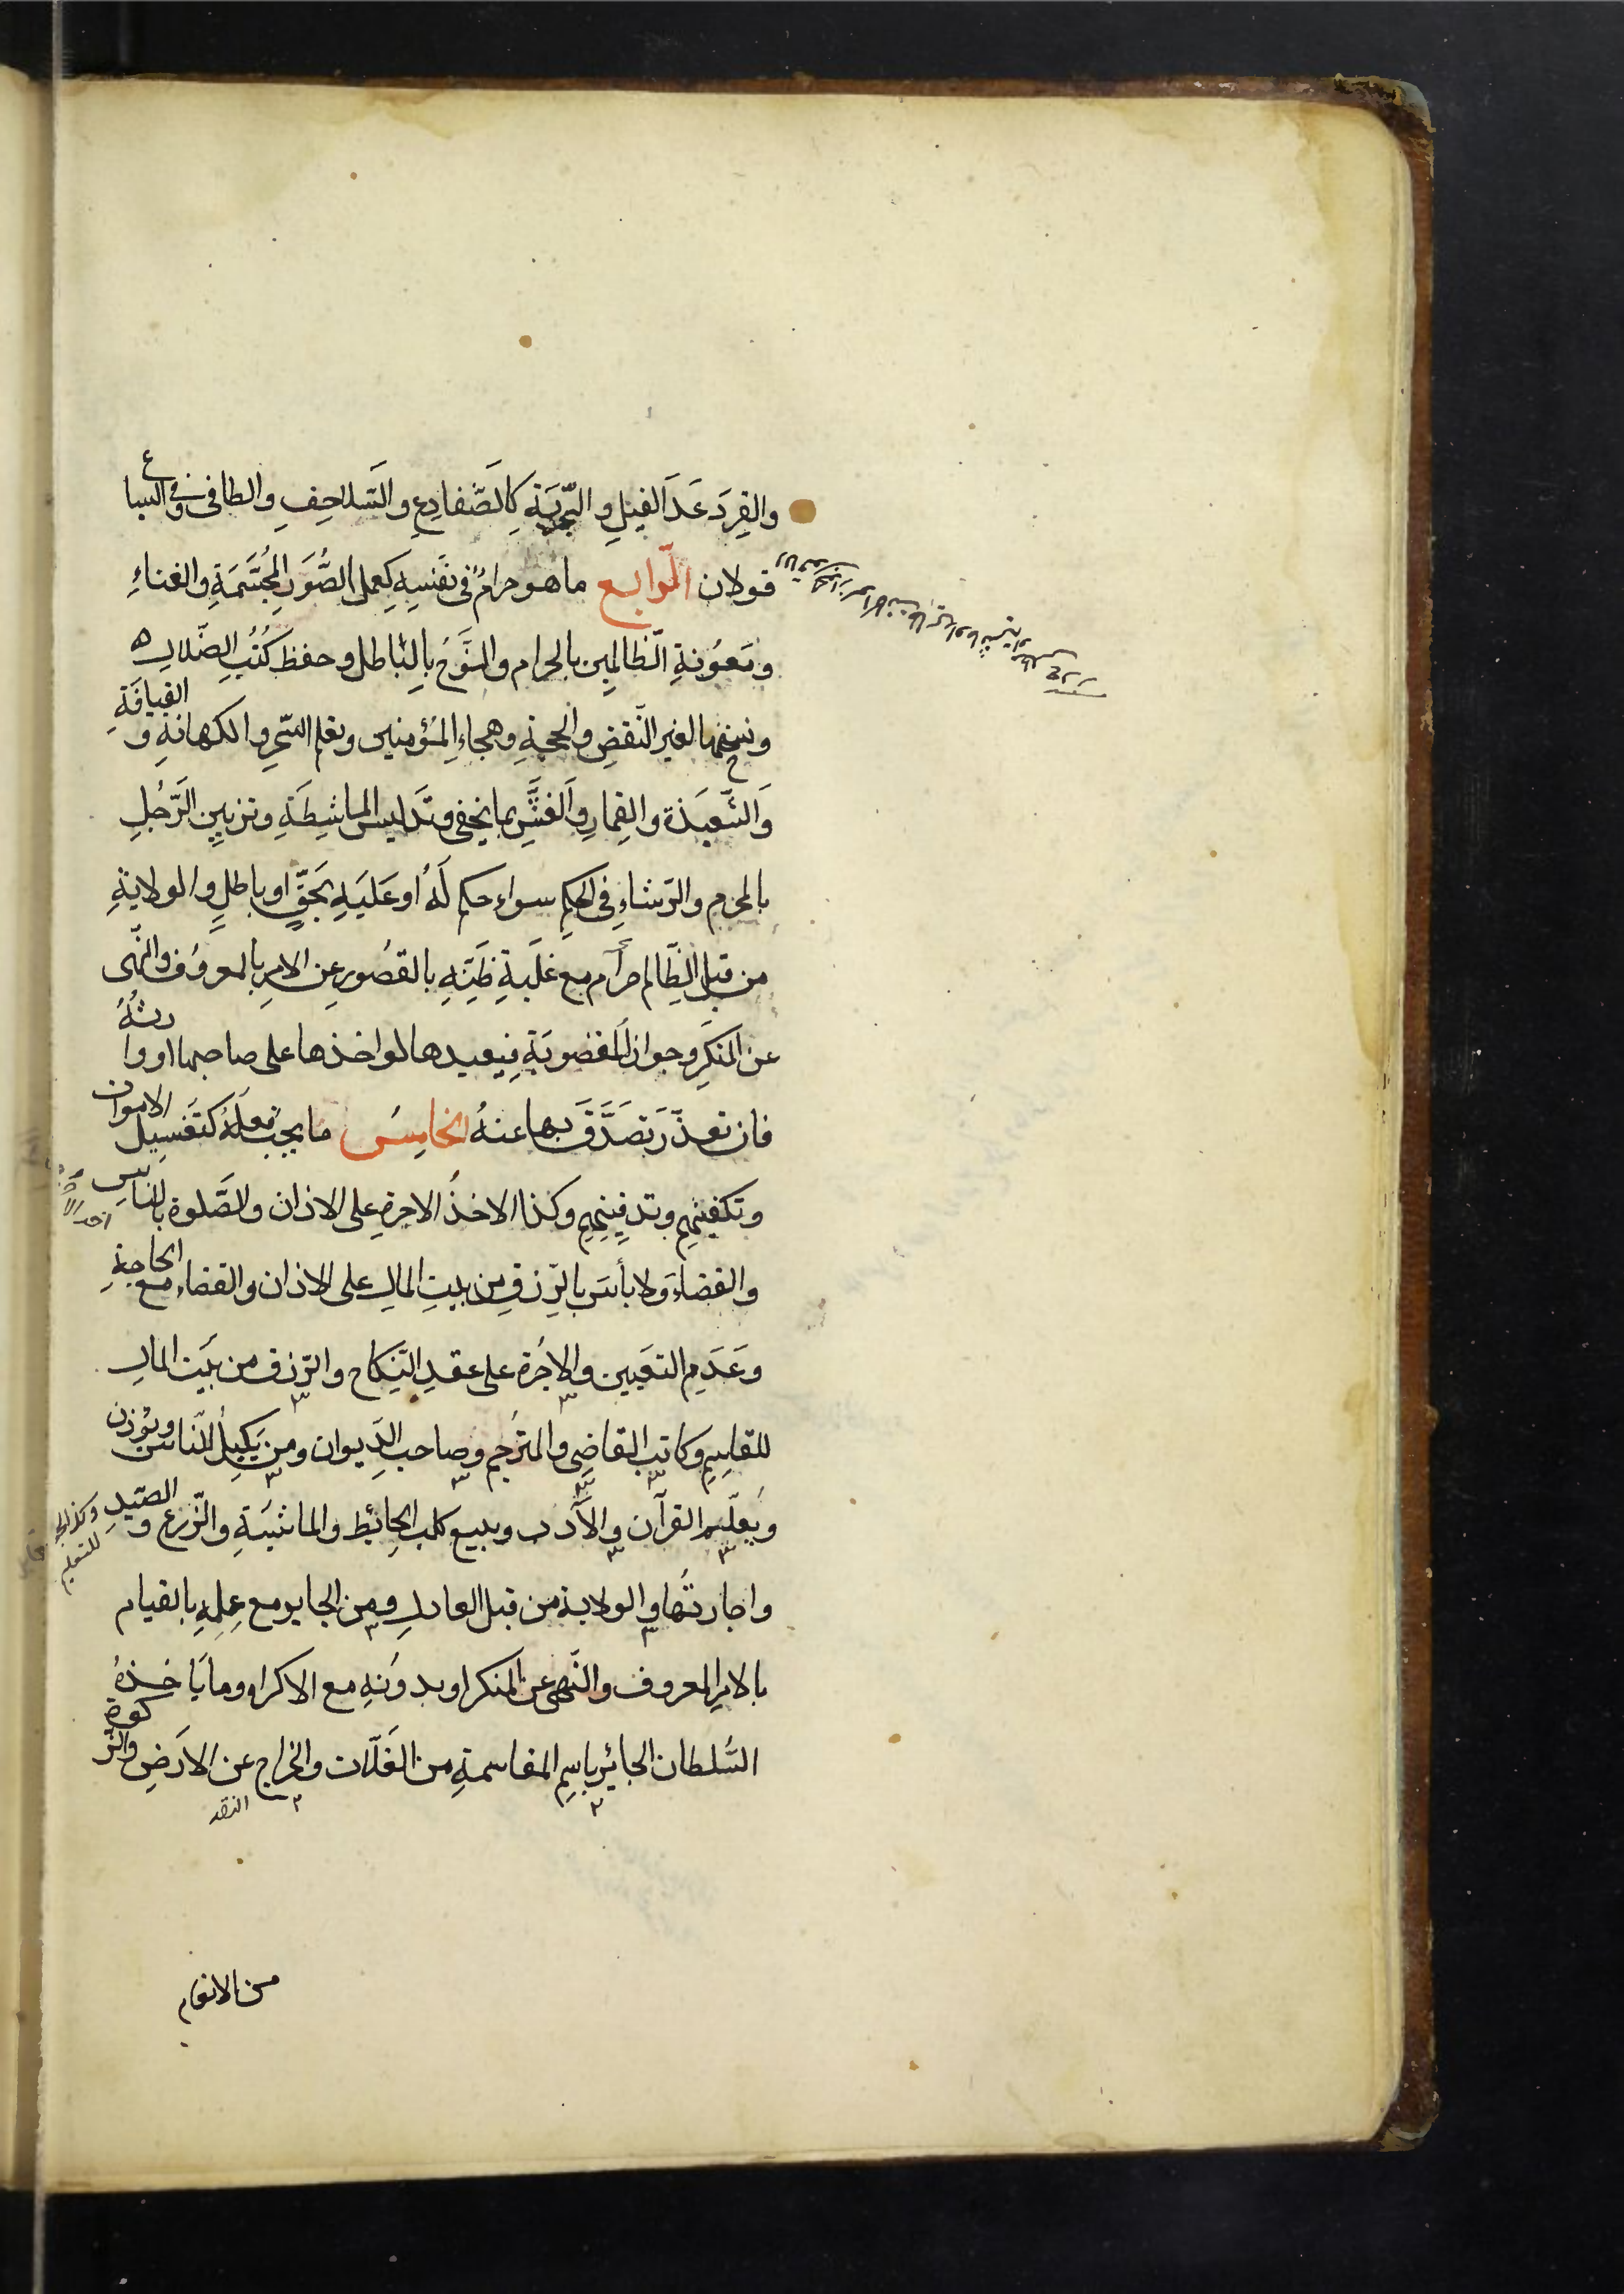 والقِردَ عَدَا الفيلِ والبَّحريَةِ كَالضَّفادِعِ والسَّلاحِفِ والطافى وفى السباع
قولان الرّابع ما هو حرامٌ فى نفسِهِ كعملِ الصُّوَرِ المُجَسَّمَةِ والغناءِ
ومَعُونةِ الظّالمِين بالحرام والنَّوحُ بالباطل وحفظ كُتُبِ الضّلالِه
ونسخها لغير النّقضِ والحجةِ وهجاءِ المُؤمنين وتعلم السّحرِ والكهانةِ و القيافَةِ
وَالشَّعبَذة والقِمارِ والغشِّ بما يخفى وتَدليس الماشِطَةِ وتزيينِ الرَّجُلِ
بالمحرم والرّشاءِ فى الحكمِ سواء حكم لَهُ او عَليَهِ بَحقٍّ او باطلٍ والولايةِ
من قبل الظّالم حرام مع غلَبةِ ظنِّهِ بالقصُورِ عِن الامرِ بالمعروُف والنّهى
عن المنكَرِ وجوائز المغصوبَةِ فيعيدها لو اخذها على صاحبها او وارثهُ
فان تعذّر تصَدَّقَ بها عنهُ الخامِسُ ما يجب فعلهُ كتغسِيل الاموات
وتكفينهِم وتدفِينهِم وكذا الاخذُ الاجرةِ على الاذان والصَّلوة بالناسِ
والقضاءَ ولا بأسَ بالرِّزقِ من بيتِ المالِ على الاذان والقضاء مع الحاجةِ
وعَدَمِ التعَيين والاجُرة على عقدِ النِّكاح والرّزق من بَيت المالِ
للقاسِمِ وكاتب القاضِى والمترجم وصاحب الدِّيوان ومن يَكيلُ للنّاس ويُوزن
ويعَلّم القرآن والآدب وبيع كلب الحائِط والماشيَةِ والزّرع و الصّيدِ
واجارتُها والولاية من قبل العادلِ ومن الجاير مع عِلمِهِ بالقيام
بالامرِ المعروف والنّهى عن المنكر او بدونهِ مع الاكراه وما يأخذهُ
السُّلطان الجائِر باسمِ المقاسمةِ من الغَلّات والخراجِ عن الارَضِ والزّكوة
من الانعام